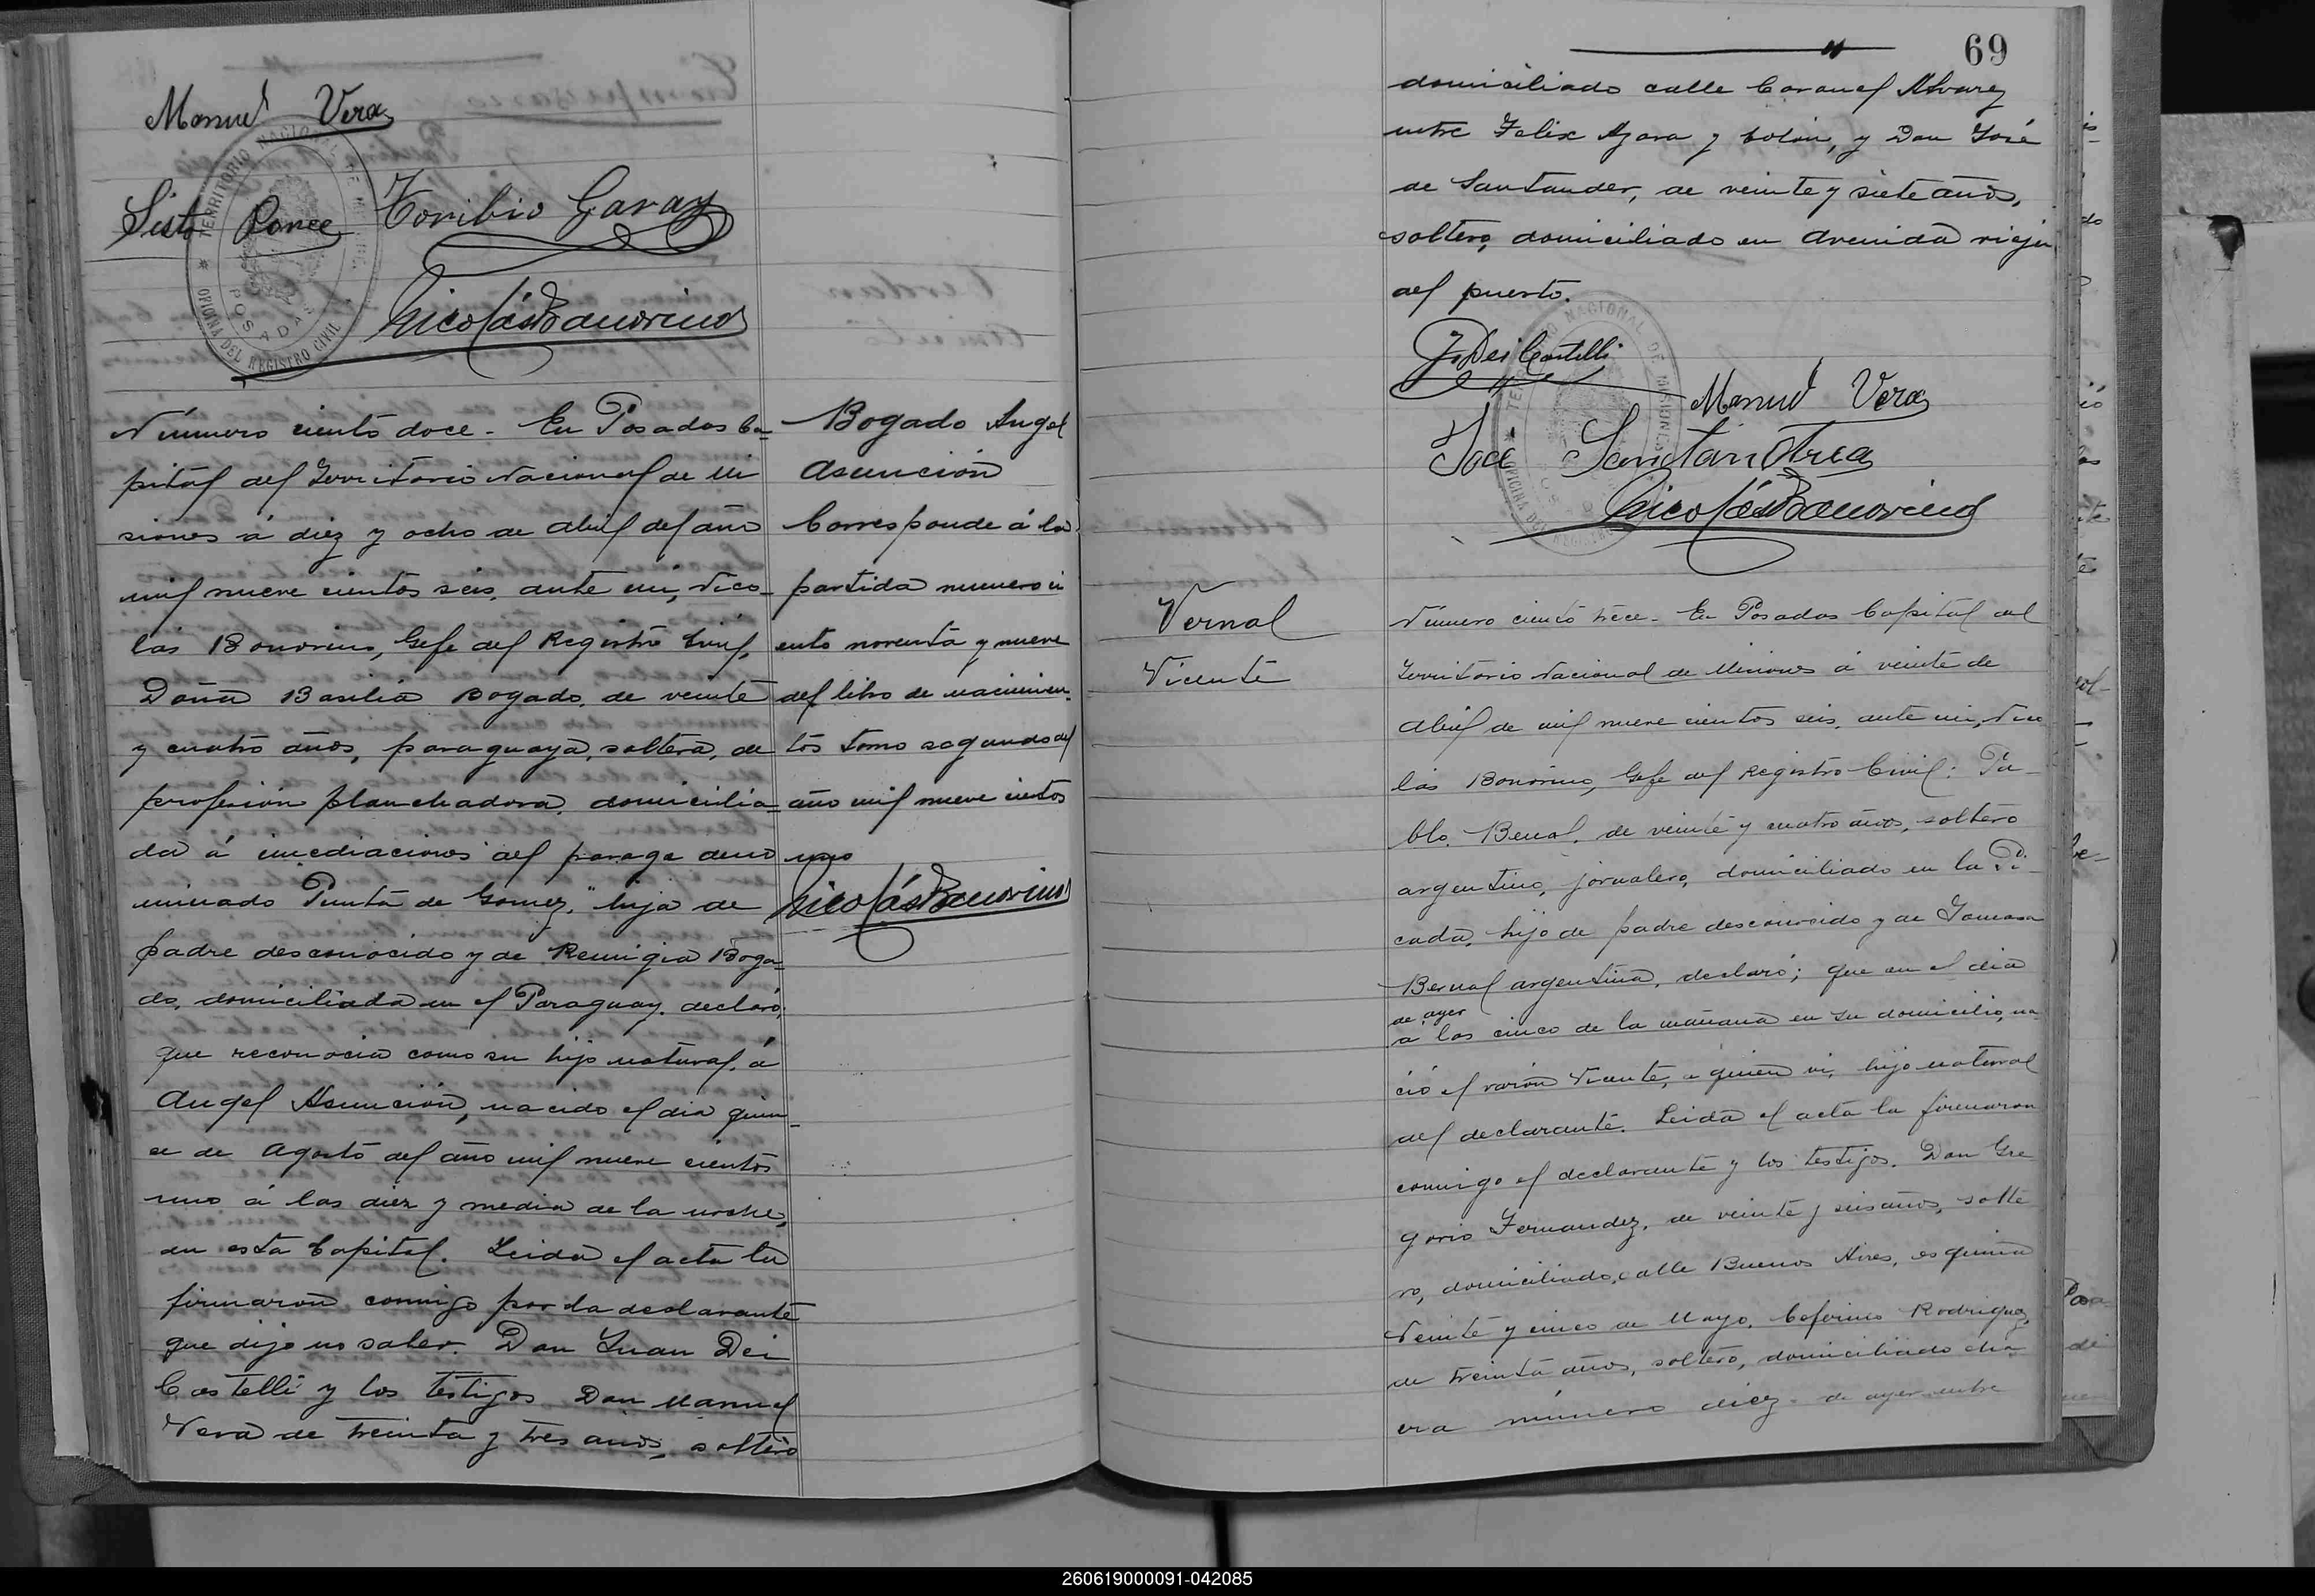 Manuel Vera
Sisto Ponce Toribio Garay
Nicolás Bonorino
TERRITORIO NACIONAL DE MISIONES
POSADAS
OFICINA DEL REGISTRO CIVIL
Número ciento doce - En Posadas Ca-
pital del Territorio Nacional de Mi
siones á diez y ocho de Abril del año
mil nueve cientos seis, ante mi, Nico-
lás Bonorino, Gefe del Registro Civil,
Doña Basilia Bogado, de veinte
y cuatro años, paraguaya, soltera, de
profesión planchadora, domicilia-
da á inmediaciones del parage deno
minado "Punta de Gomez," hija de
padre desconocido y de Remigia Boga-
do, domiciliada en el Paraguay, declaró;
que reconocia como su hijo natural, á
Angel Asunción, nacido el dia quin-
ce de Agosto del año mil nueve cientos
uno á las diez y media de la noche,
en esta Capital. Leida el acta la
firmaron conmigo por la declarante
que dijo no saber. Don Juan Dei
Castelli y los testigos Don Manuel
Vera de treinta y tres años, soltero
Bogado Angel
Asunción
Corresponde á la
partida numero ci
ento noventa y nueve
del libro de nacimien-
tos tomo segundo del
año mil nueve cientos
uno
Nicolás Bonorino
69
domiciliado calle Coronel Alvarez
entre Felix Azara y Colón, y Don José
de Santander, de veinte y siete años,
soltero, domiciliado en Avenida vieja
del puerto.
J. Dei Castelli
Manuel Vera
José Santan
Nicolás Bonorino
Vernal
Vicente
Número ciento trece - En Posadas Capital del
Territorio Nacional de Misiones á veinte de
Abril de mil nueve cientos seis, ante mi, Nico
lás Bonorino, Gefe del Registro Civil: Pa-
blo Bernal, de veinte y cuatro años, soltero
argentino, jornalero, domiciliado en la Pi-
cada, hijo de padre desconocido y de Tomasa
Bernal argentina, declaró; que en el dia
de ayer
á las cinco de la mañana en su domicilio, na-
ció el varón Vicente, a quien vi, hijo natural
del declarante. Leida el acta la firmaron
conmigo el declarante y los testigos. Don Gre
gorio Fernandez, de veinte y seis años, solte
ro, domiciliado, calle Buenos Aires, esquina
Veinte y cinco de Mayo, Ceferino Rodriguez,
de treinta años, soltero, domiciliado cha-
cra número diez - de ayer entre
260619000091-042085